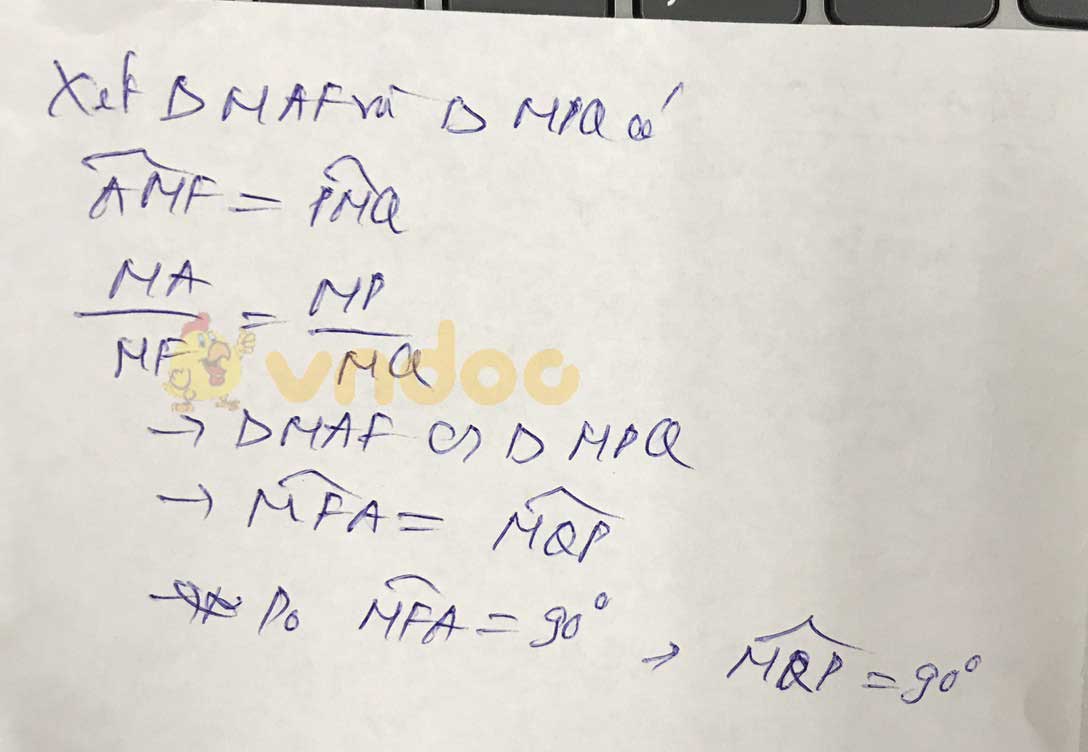 Xét Δ MAF và Δ MPQ có
\widehat{AMF} = \widehat{PMQ}
\frac{MA}{MF} = \frac{MP}{MQ}
vndoc
→ Δ MAF ∽ Δ MPQ
→ \widehat{MFA} = \widehat{MQP}
Do \widehat{MFA} = 90° → \widehat{MQP} = 90°